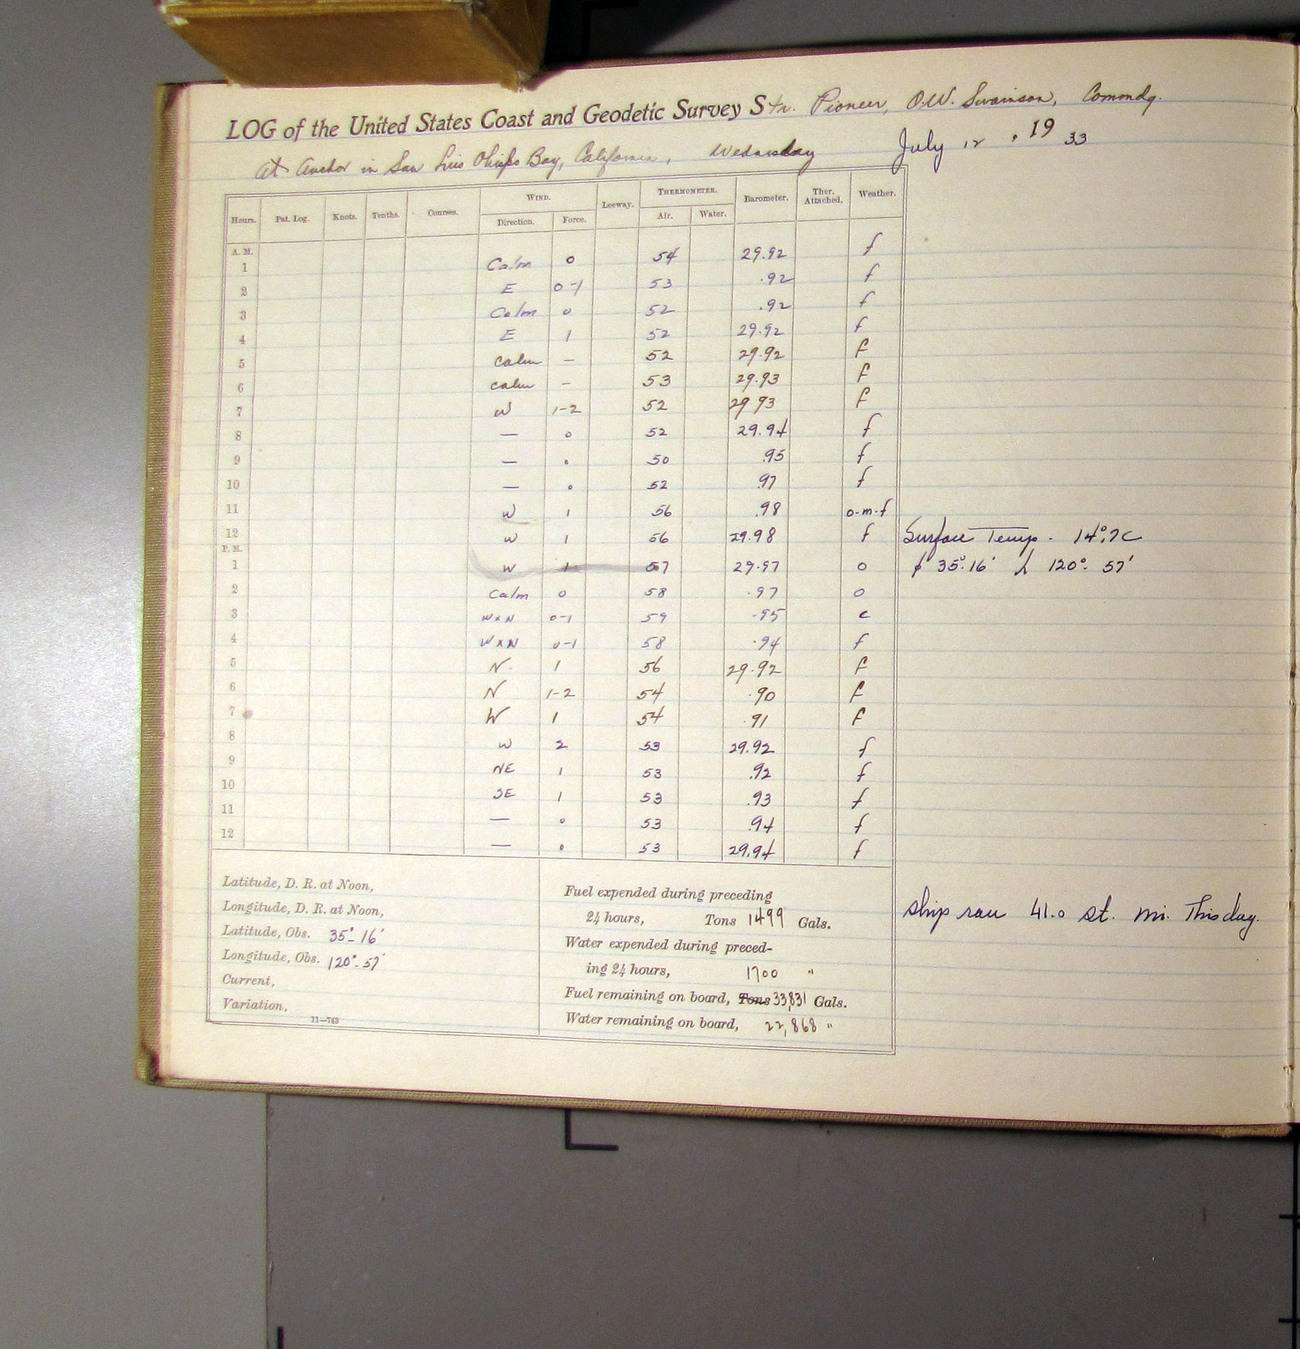 LOG of the United States Coast and Geodetic Survey Str. Pioneer, O.W. Swainson, Comondg.
At Anchor in San Luis Obispo Bay, California, Wednesday July 12, 1933
Hours. Pat. Log. Knots. Tenths. Courses. WIND. Direction. Force. Leeway. THERMOMETER. Air. Water. Barometer. Ther. Attached. Weather.
A. M.
1 Calm 0 54 29.92 f
2 E 0-1 53 .92 f
3 Calm 0 52 .92 f
4 E 1 52 29.92 f
5 calm – 52 29.92 f
6 calm – 53 29.93 f
7 W 1-2 52 29.93 f
8 — 0 52 29.94 f
9 — 0 50 .95 f
10 — 0 52 .97 f
11 W 1 56 .98 o-m-f
12 W 1 56 29.98 f Surface Temp. - 14°.7C
P. M.
1 W 1 57 29.97 o ϕ 35°.16' λ 120°. 57'
2 Calm 0 58 .97 o
3 WxN 0-1 59 .95 c
4 WxN 0-1 58 .94 f
5 N. 1 56 29.92 f
6 N 1-2 54 .90 f
7 W 1 54 .91 f
8 W 2 53 29.92 f
9 NE 1 53 .92 f
10 SE 1 53 .93 f
11 — 0 53 .94 f
12 — 0 53 29.94 f
Latitude, D. R. at Noon,
Longitude, D. R. at Noon,
Latitude, Obs. 35°- 16'
Longitude, Obs. 120°- 57'
Current,
Variation,
11—763
Fuel expended during preceding
24 hours, Tons 1499 Gals.
Water expended during preced-
ing 24 hours, 1700 "
Fuel remaining on board, Tons 33,831 Gals.
Water remaining on board, 22,868 "
Ship ran 41.0 st. mi. This day.